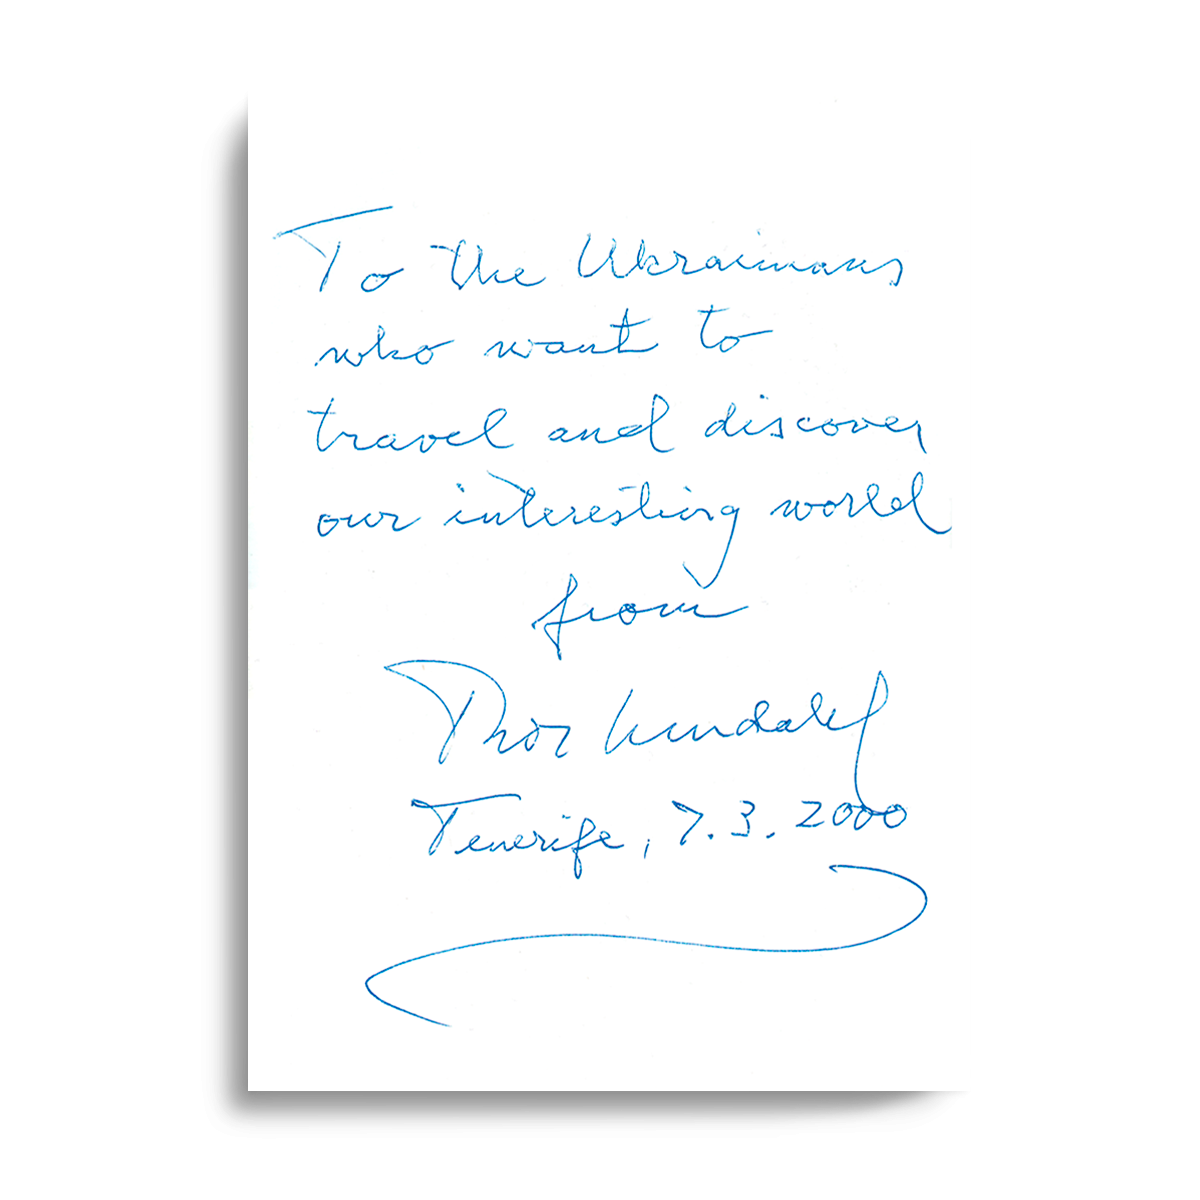 To the Ukrainians
who want to
travel and discover
our interesting world
from
Thor Heyerdahl
Tenerife, 7.3.2000